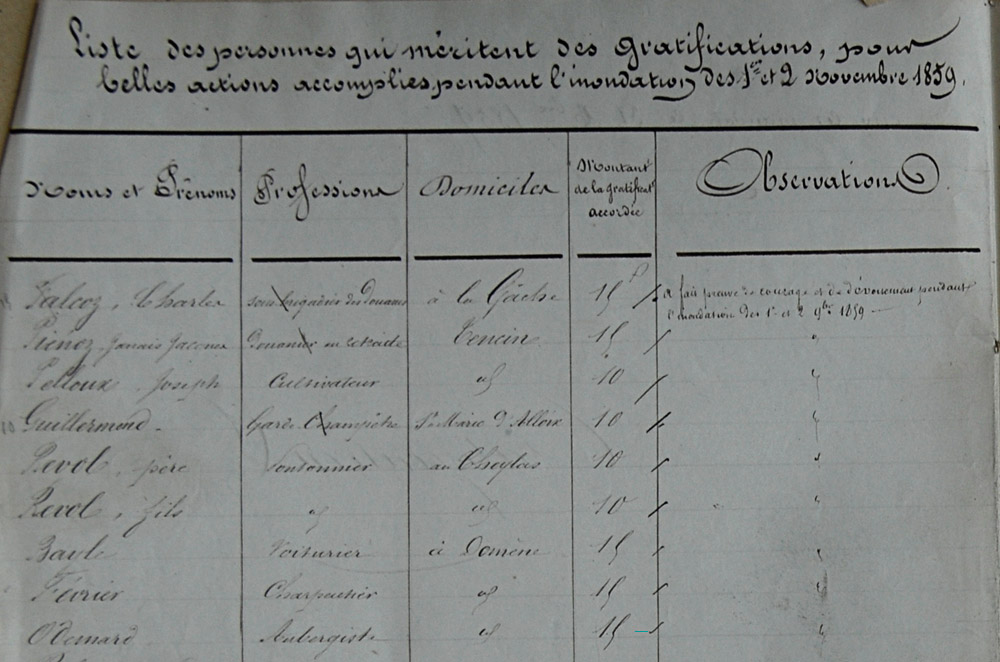 Liste des personnes qui méritent des gratifications, pour
belles actions accomplies pendant l'inondation des 1er et 2 Novembre 1859.
Noms et Prénoms Professions Domiciles Montant de la gratificat. accordée Observations
Falcoz, Charles sous brigadier des Douanes à la Gâche 15 f a fait preuve de courage et de dévouement pendant
l'inondation des 1er et 2 9bre 1859
Jacques Douanier en retraite Tencin 15 "
Pelloux Joseph Cultivateur id 10 "
Guillermond Garde Champêtre Ste Marie d'Alloix 10 "
Revol, père pontonnier au Cheylas 10 "
Revol, fils id id 10 "
Bayle Voiturier à Domène 15 "
Février Charpentier id 15 "
Odemard Aubergiste id 15 "